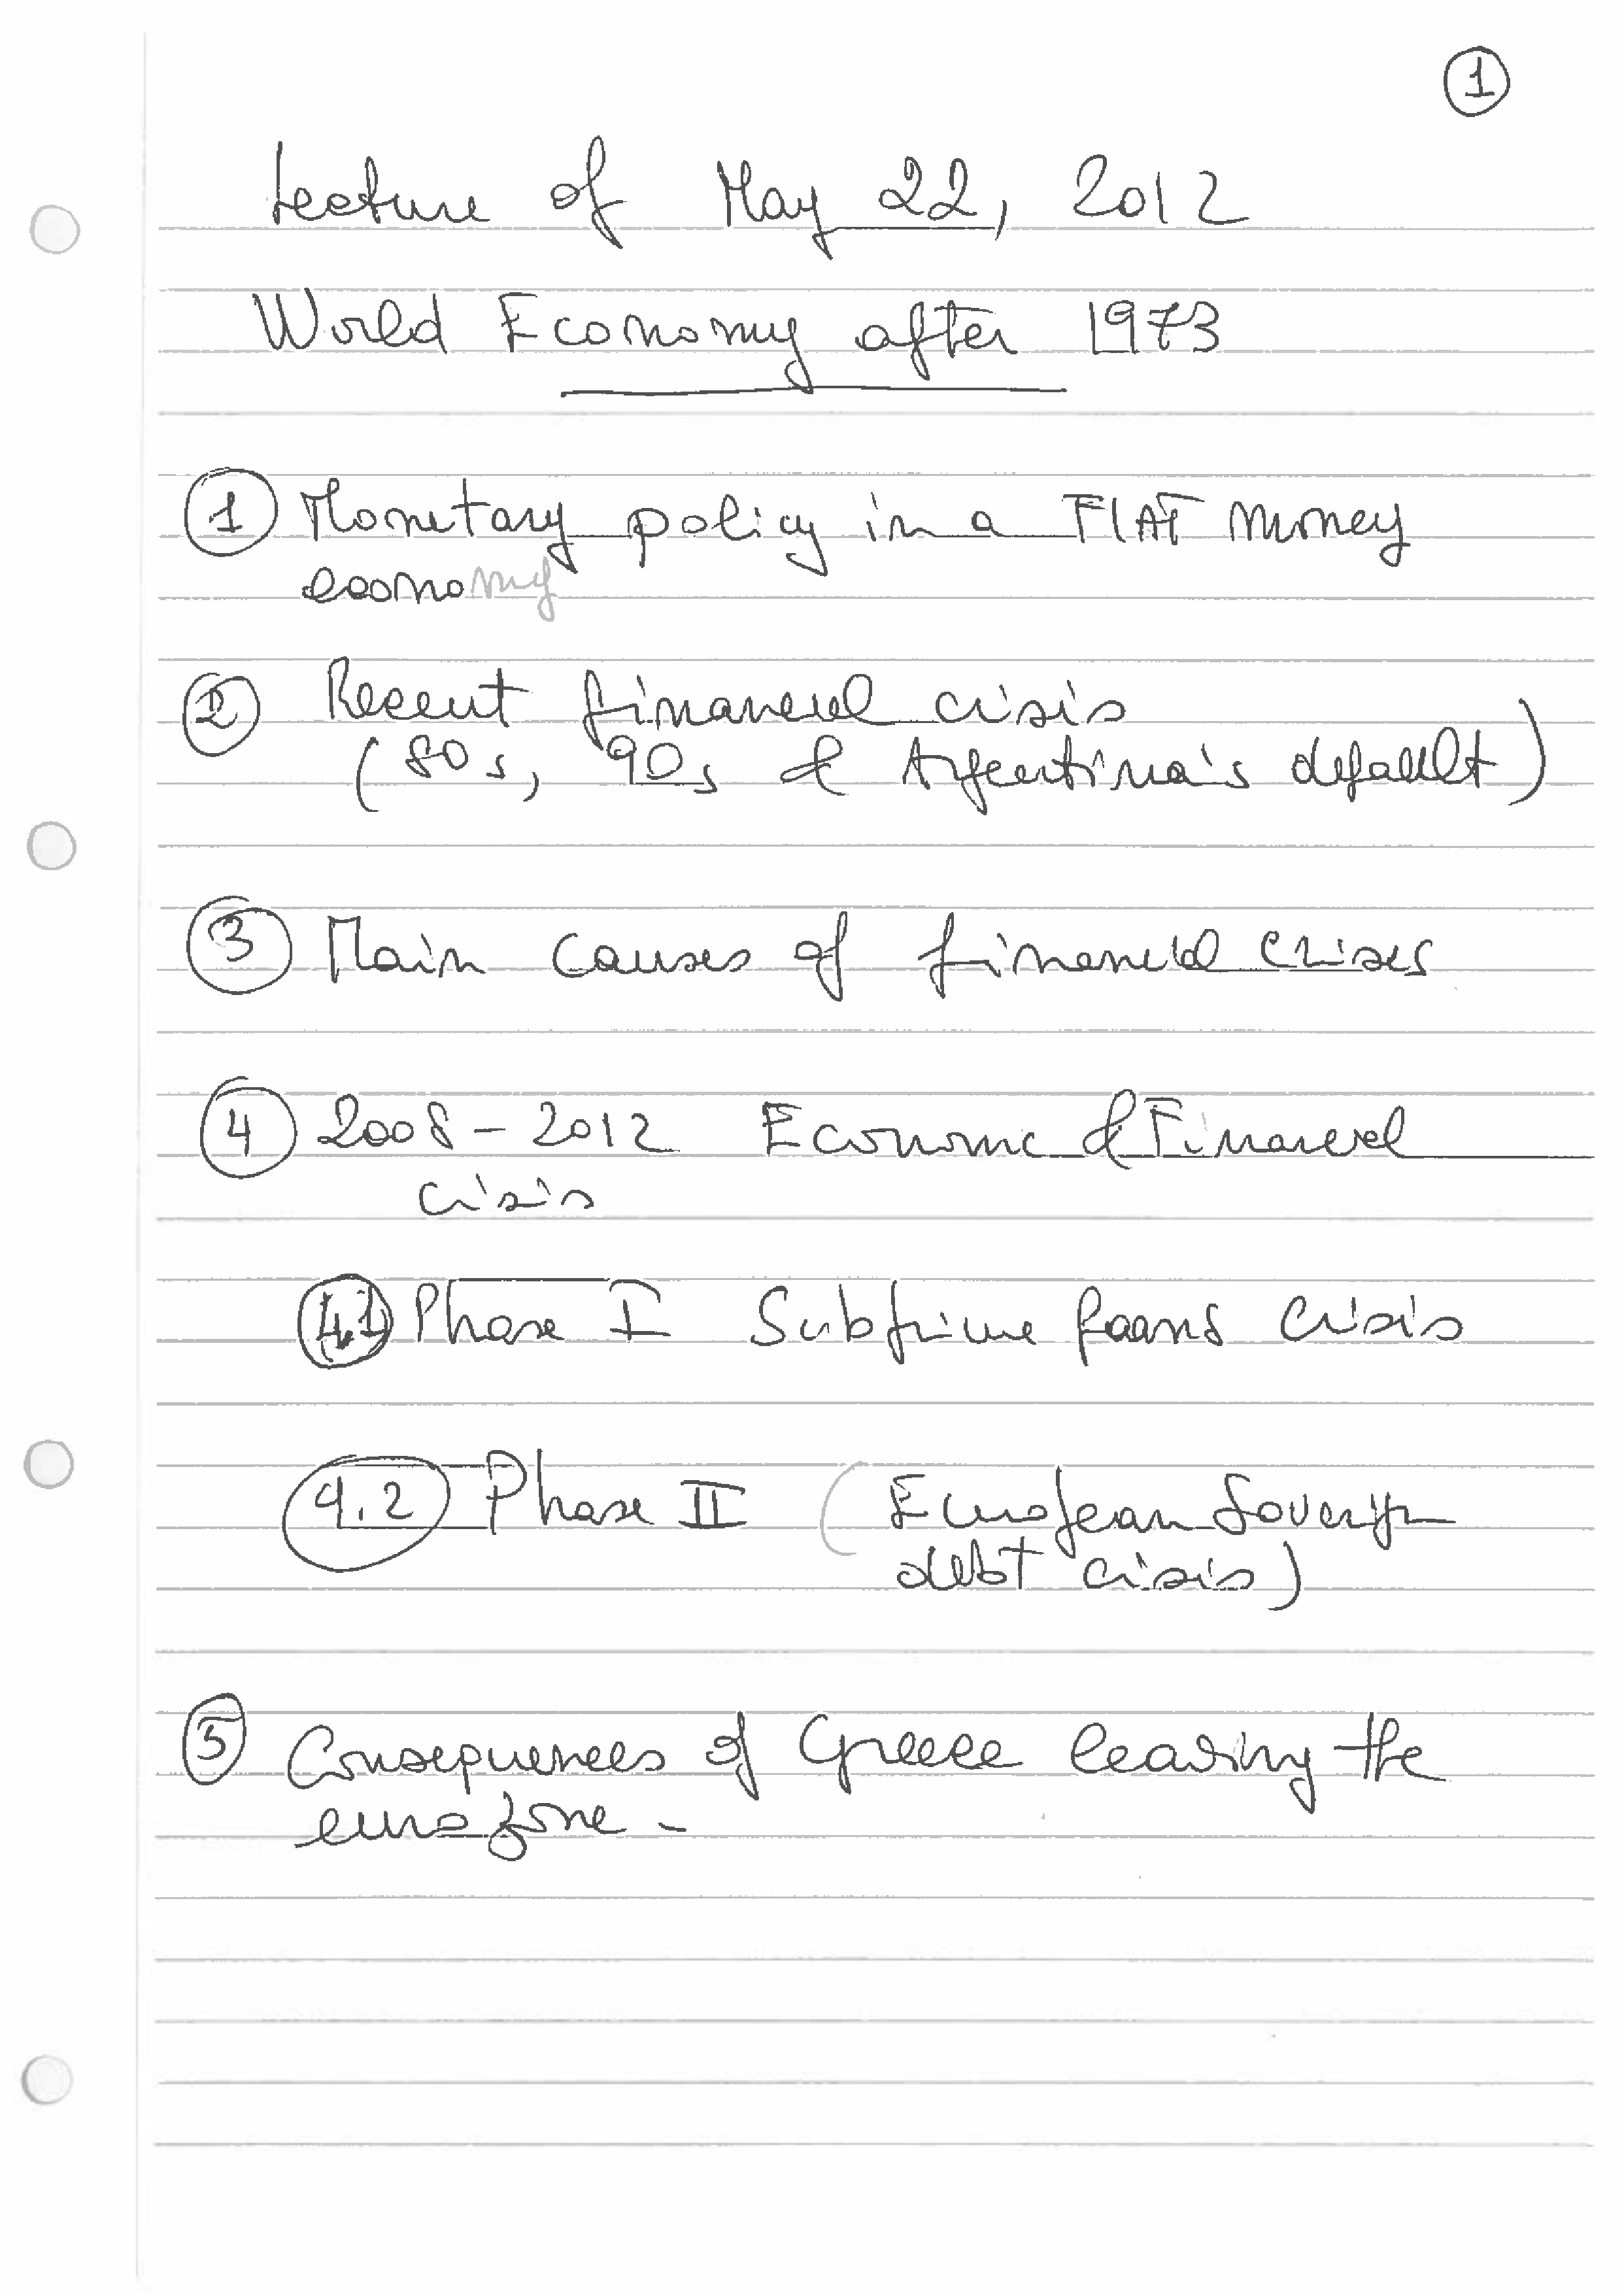 1
Lecture of May 22, 2012
World Economy after 1973
1 Monetary policy in a FIAT money
economy
2 Recent financial crisis
(80s, 90s & Argentina's default)
3 Main causes of financial crises
4 2008 - 2012 Economic & Financial
crisis
4.1 Phase I Subprime loans crisis
4.2 Phase II (European Sovereign
debt crisis)
5 Consequences of Greece leaving the
eurozone -